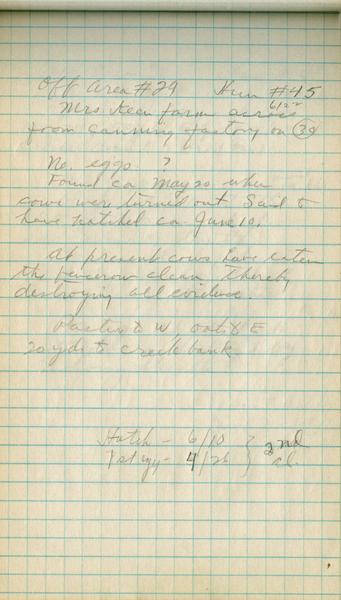 Off Area #29 Hen #45
6/22
Mrs. Keen farm across
from canning factory on 39
No. eggs ?
Found ca May 20 when
cows were turned out. Said to
have hatched ca June 10.
At present cows have eaten
the fencerow clean thereby
destroying all evidence.
Pasture to W, oats to E
20 yds to creek bank
Hatch - 6/10
1st egg - 4/26
2nd